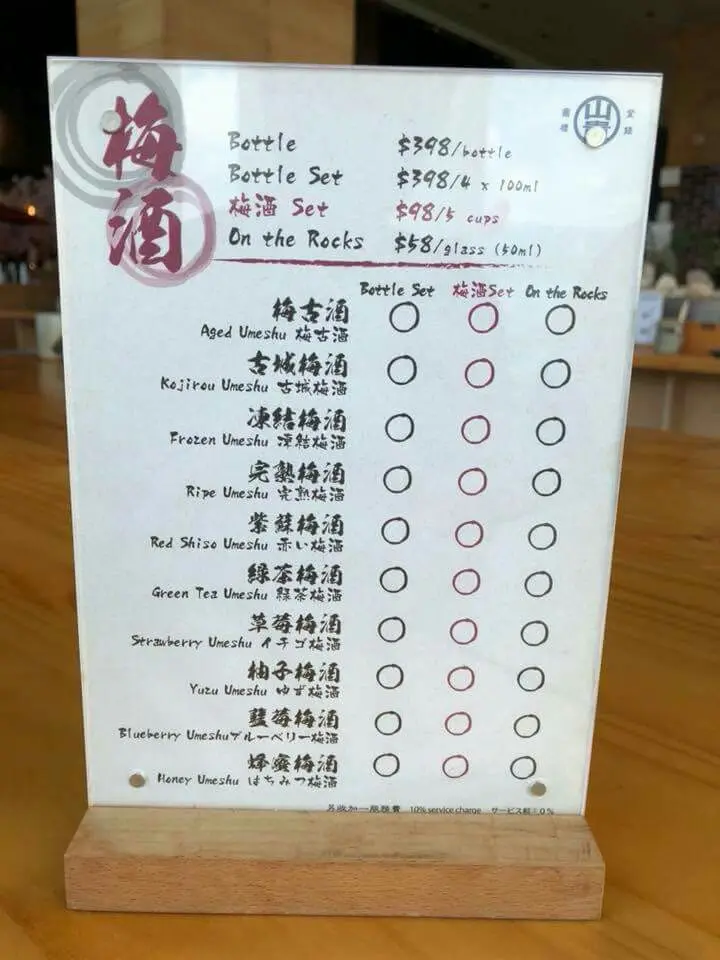 梅酒
Bottle $398/bottle
Bottle Set $398/4 x 100ml
梅酒 Set $98/5 cups
On the Rocks $58/glass (50ml)
Bottle Set 梅酒Set On the Rocks
梅古酒
Aged Umeshu 梅古酒
古城梅酒
Kojirou Umeshu 古城梅酒
凍結梅酒
Frozen Umeshu 凍結梅酒
完熟梅酒
Ripe Umeshu 完熟梅酒
紫蘇梅酒
Red Shiso Umeshu 赤い梅酒
綠茶梅酒
Green Tea Umeshu 緑茶梅酒
草莓梅酒
Strawberry Umeshu イチゴ梅酒
柚子梅酒
Yuzu Umeshu ゆず梅酒
藍莓梅酒
Blueberry Umeshuブルーベリー梅酒
蜂蜜梅酒
Honey Umeshu はちみつ梅酒
另收加一服務費 10% service charge サービス料